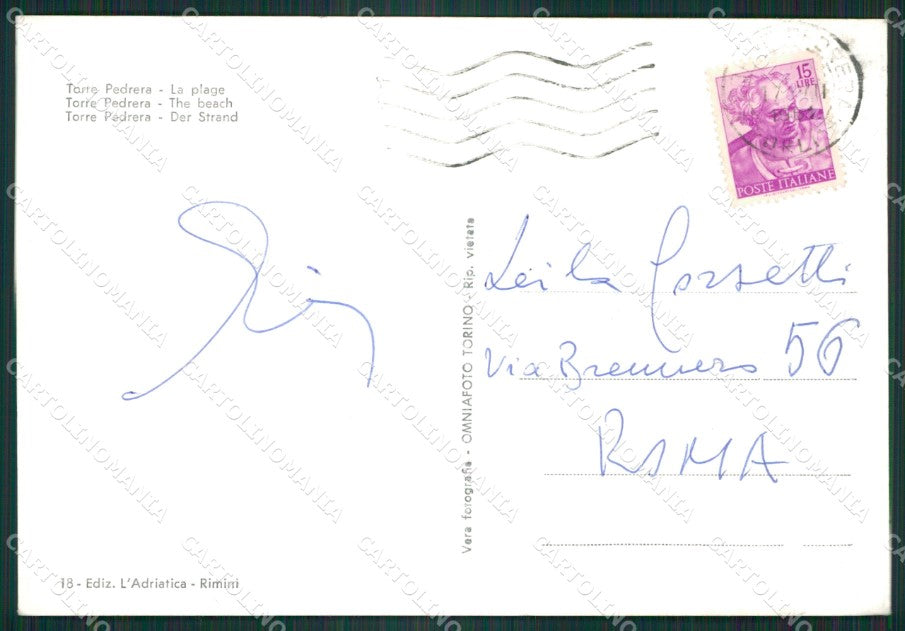 Torre Pedrera - La plage
Torre Pedrera - The beach
Torre Pedrera - Der Strand
15
LIRE
POSTE ITALIANE
Vera fotografia - OMNIAFOTO TORINO - Rip. vietata
Leila Corsetti
Via Brennero 56
ROMA
18 - Ediz. L'Adriatica - Rimini
CARTOLINOMANIA